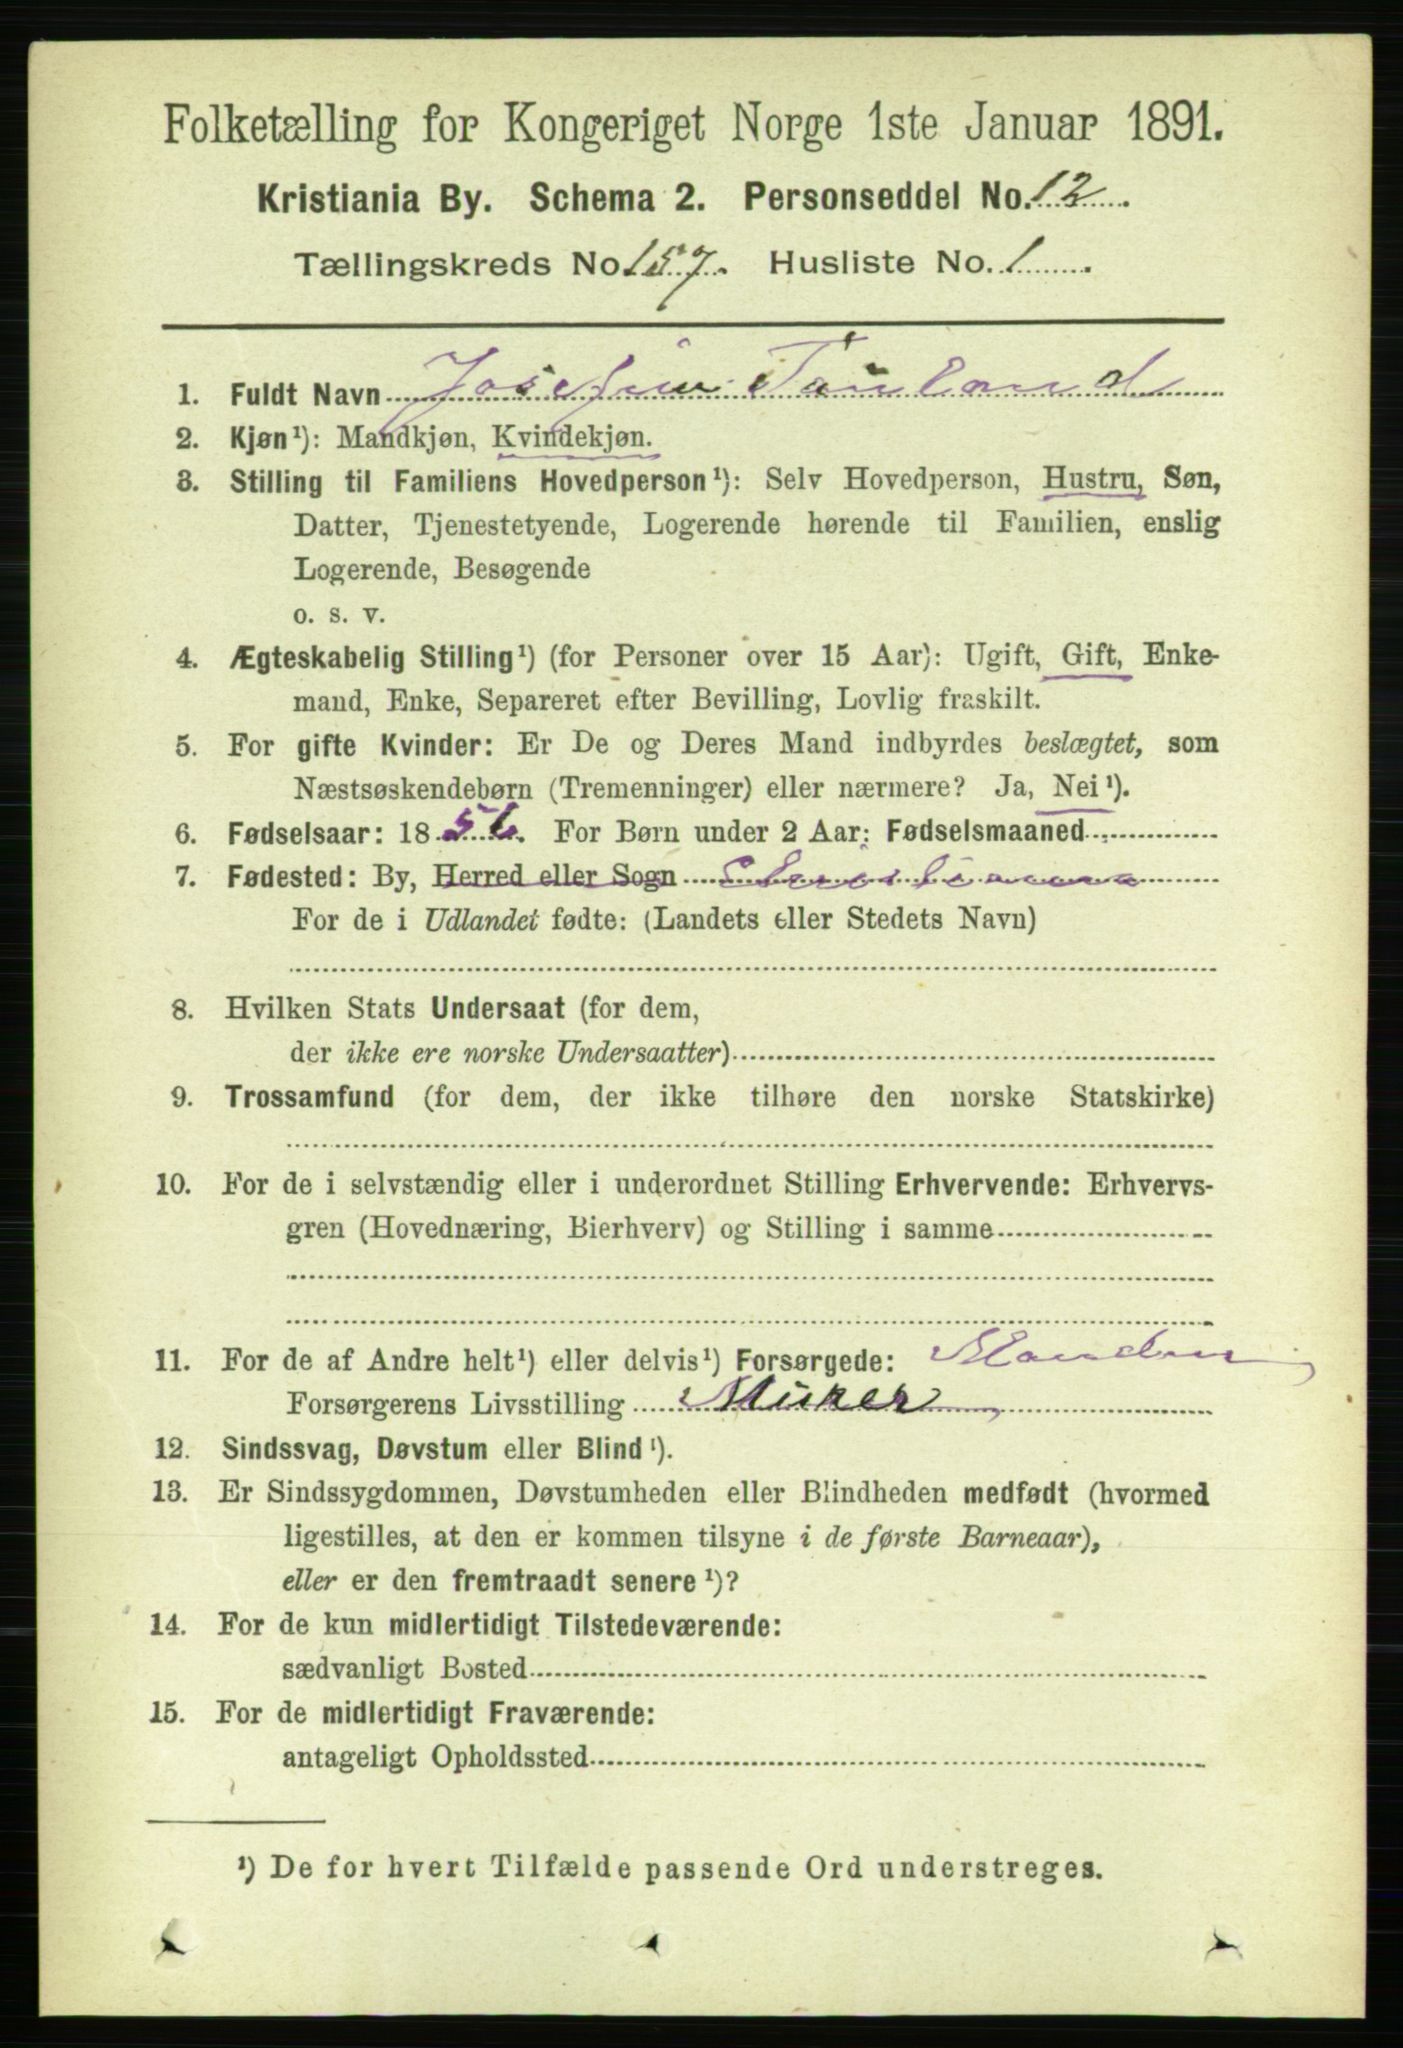 Folketælling for Kongeriget Norge 1ste Januar 1891.
Kristiania By. Schema 2. Personseddel No. 12
Tællingskreds No 157. Husliste No. 1
1. Fuldt Navn Josefine
2. Kjøn ¹): Mandkjøn, Kvindekjøn.
3. Stilling til Familiens Hovedperson ¹): Selv Hovedperson, Hustru, Søn,
Datter, Tjenestetyende, Logerende hørende til Familien, enslig
Logerende, Besøgende
o. s. v.
4. Ægteskabelig Stilling ¹) (for Personer over 15 Aar): Ugift, Gift, Enke-
mand, Enke, Separeret efter Bevilling, Lovlig fraskilt.
5. For gifte Kvinder: Er De og Deres Mand indbyrdes beslægtet, som
Næstsøskendebørn (Tremenninger) eller nærmere? Ja, Nei ¹).
6. Fødselsaar: 1856. For Børn under 2 Aar: Fødselsmaaned
7. Fødested: By, Herred eller Sogn Christiania
For de i Udlandet fødte: (Landets eller Stedets Navn)
8. Hvilken Stats Undersaat (for dem,
der ikke ere norske Undersaatter)
9. Trossamfund (for dem, der ikke tilhøre den norske Statskirke)
10. For de i selvstændig eller i underordnet Stilling Erhvervende: Erhvervs-
gren (Hovednæring, Bierhverv) og Stilling i samme
11. For de af Andre helt ¹) eller delvis ¹) Forsørgede: Manden
Forsørgerens Livsstilling Murer
12. Sindssvag, Døvstum eller Blind ¹).
13. Er Sindssygdommen, Døvstumheden eller Blindheden medfødt (hvormed
ligestilles, at den er kommen tilsyne i de første Barneaar),
eller er den fremtraadt senere ¹)?
14. For de kun midlertidigt Tilstedeværende:
sædvanligt Bosted
15. For de midlertidigt Fraværende:
antageligt Opholdssted
¹) De for hvert Tilfælde passende Ord understreges.